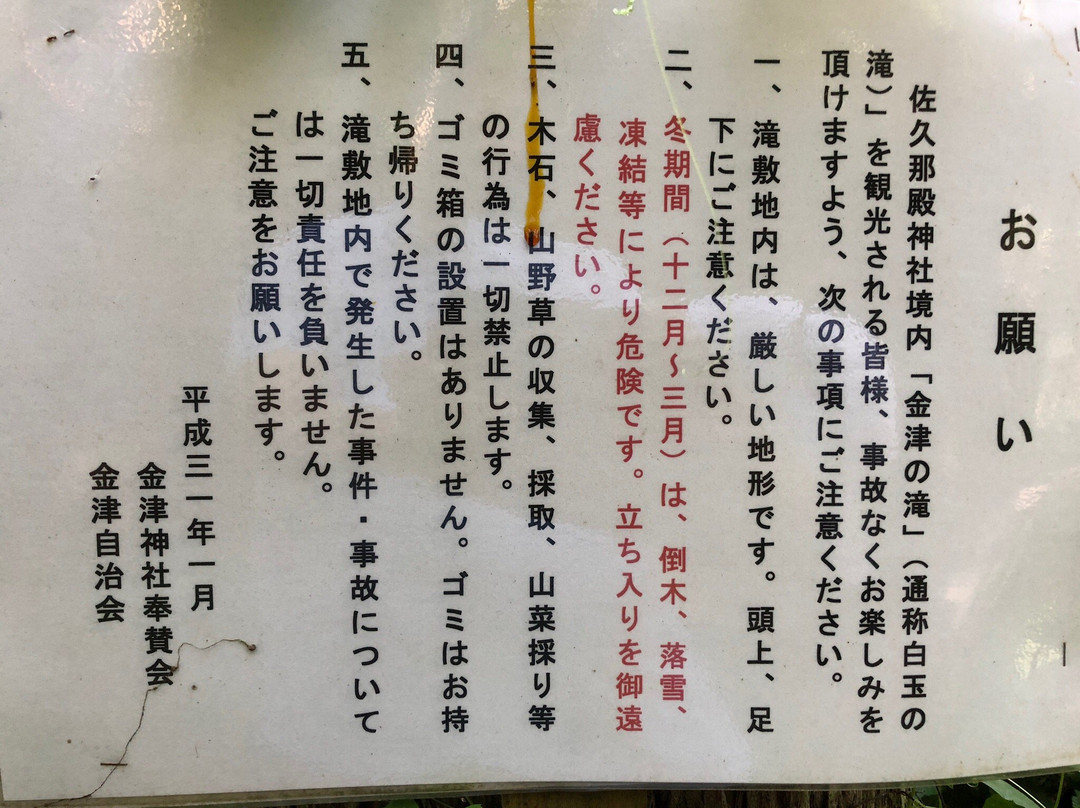 お願い
佐久那殿神社境内「金津の滝」（通称白玉の
滝）」を観光される皆様、事故なくお楽しみを
頂けますよう、次の事項にご注意ください。
一、滝敷地内は、厳しい地形です。頭上、足
下にご注意ください。
二、冬期間（十二月～三月）は、倒木、落雪、
凍結等により危険です。立ち入りを御遠
慮ください。
三、木石、山野草の収集、採取、山菜採り等
の行為は一切禁止します。
四、ゴミ箱の設置はありません。ゴミはお持
ち帰りください。
五、滝敷地内で発生した事件・事故について
は一切責任を負いません。
ご注意をお願いします。
平成三一年一月
金津神社奉賛会
金津自治会